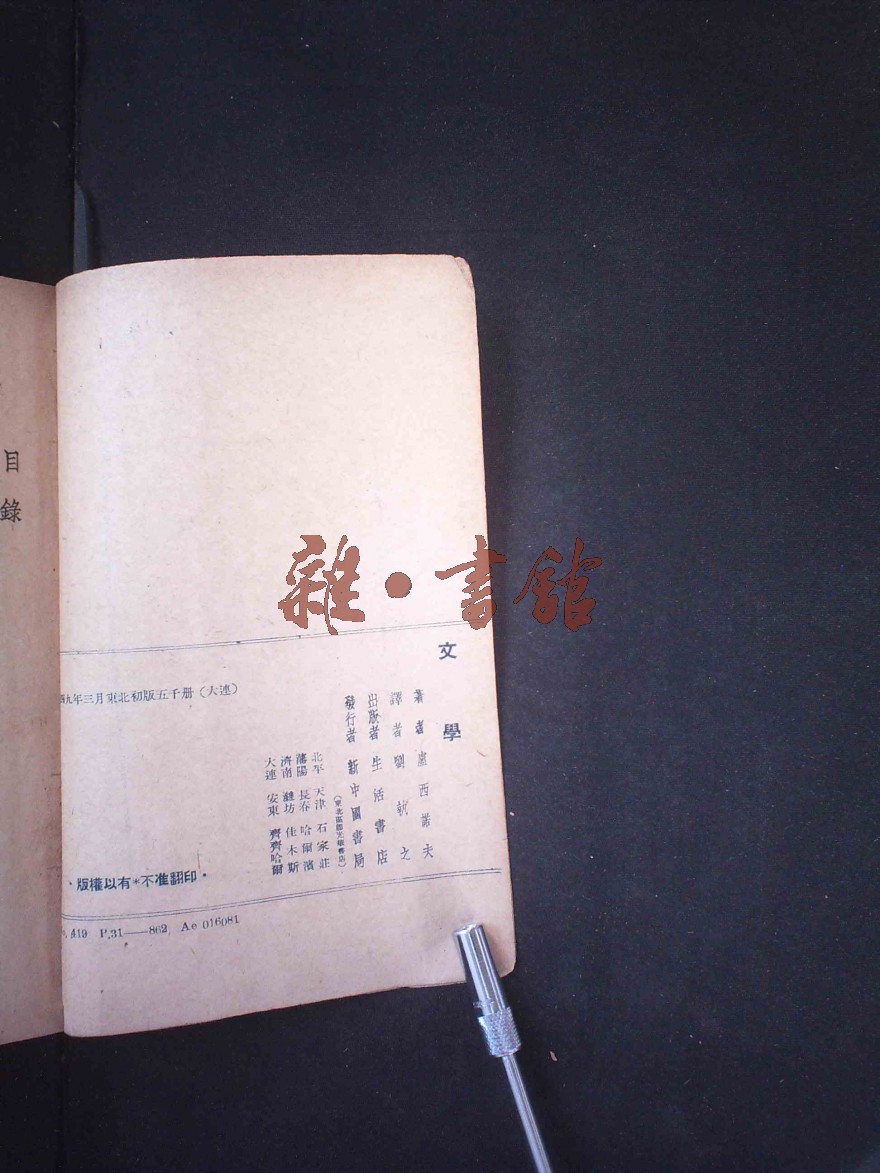 目錄
雜·書館
文學
著者 盧西諾夫
譯者 劉執之
出版者 生活書店
發行者 新中國書局
(東北區總光華書店)
北平 天津 石家莊
瀋陽 長春 哈爾濱
濟南 濰坊 佳木斯
大連 安東 齊齊哈爾
九年三月東北初版五千册(大連)
·版權以有*不准翻印·
419 P,31——862, Ac 016081